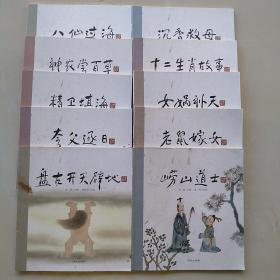 八仙过海
神农尝百草
精卫填海
夸父逐日
盘古开天辟地
沉香救母
十二生肖故事
女娲补天
老鼠嫁女
崂山道士